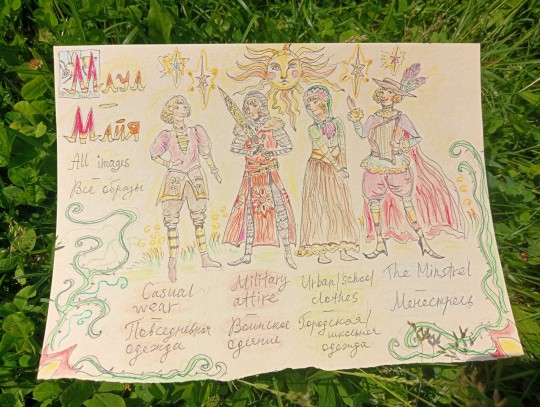 Маул
–
Майя
All images
Все образы
Casual
wear
Повседневная
одежда
Military
attire
Воинское
одеяние
Urban/school
clothes
Городская/
школьная
одежда
The Minstrel
–
Менестрель